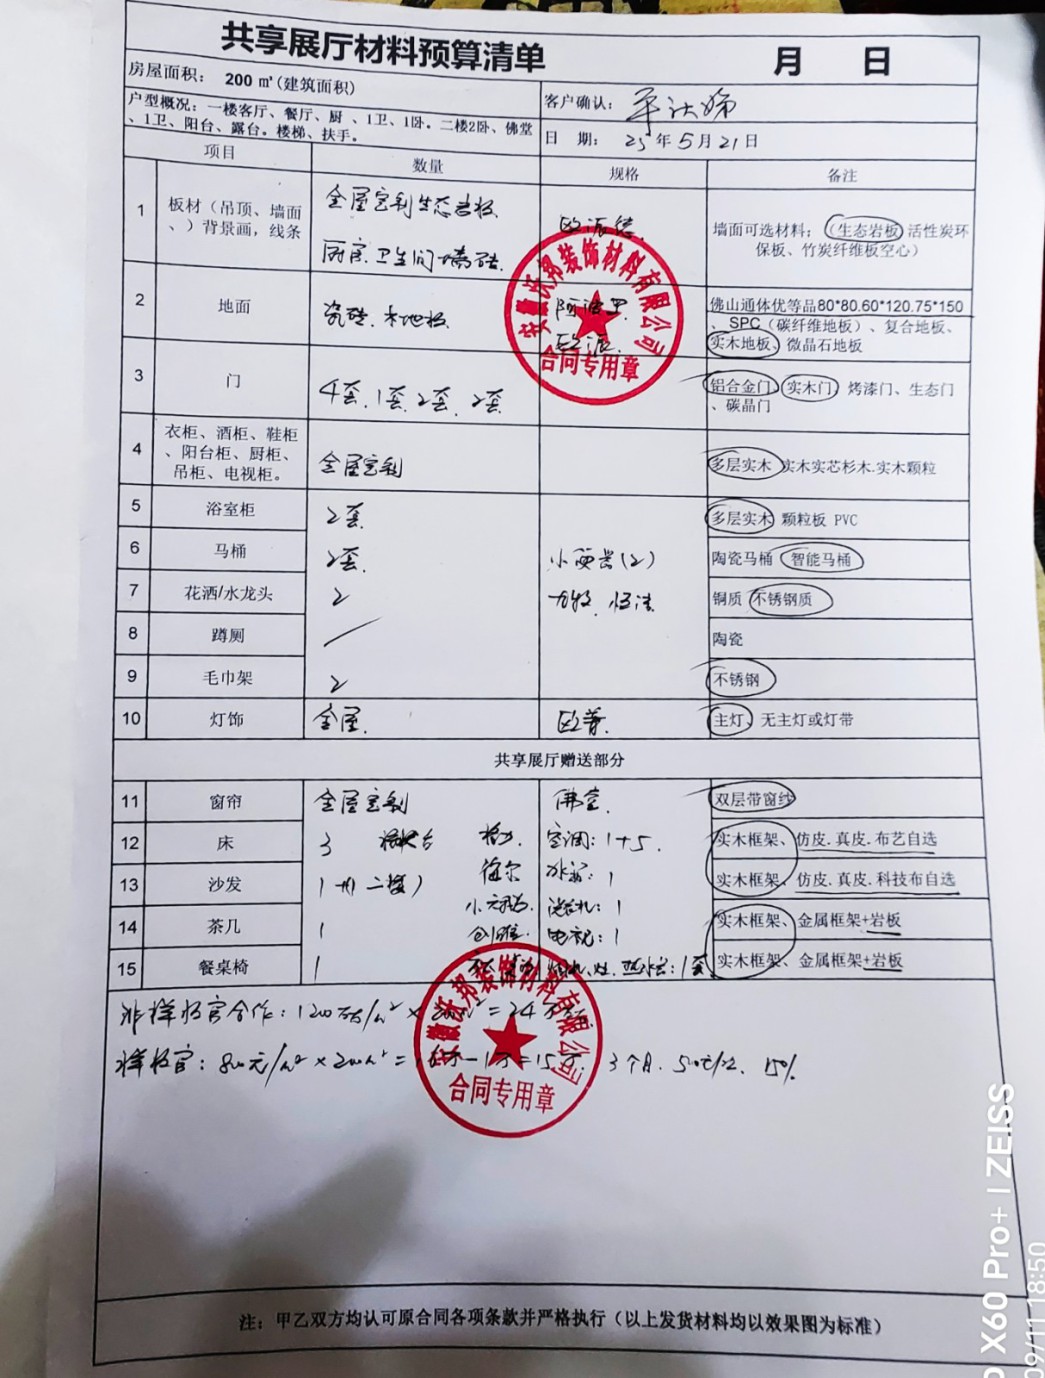 共享展厅材料预算清单 月 日
房屋面积： 200 ㎡(建筑面积)
户型概况：一楼客厅、餐厅、厨、1卫、1卧。二楼2卧、佛堂
、1卫、阳台、露台。楼梯、扶手。
客户确认：
日 期： 25年5月21日
项目 数量 规格 备注
1 板材（吊顶、墙面
、）背景画，线条
全屋定制生态岩板
厨房.卫生间墙砖.
欧派德.
墙面可选材料；（生态岩板 活性炭环
保板、竹炭纤维板空心）
2 地面 瓷砖.木地板
阿波罗
欧派.
佛山通体优等品80*80.60*120.75*150
、SPC（碳纤维地板）、复合地板、
实木地板、微晶石地板
3 门 4套.1套.2套.2套
铝合金门、实木门、烤漆门、生态门
、碳晶门
安徽沃邦装饰材料有限公司
合同专用章
4 衣柜、酒柜、鞋柜
、阳台柜、厨柜、
吊柜、电视柜。
全屋定制
多层实木 实木实芯杉木.实木颗粒
5 浴室柜 2套. 多层实木 颗粒板 PVC
6 马桶 2套. (2) 陶瓷马桶 智能马桶
7 花洒/水龙头 2 九牧.恒洁 铜质 不锈钢质
8 蹲厕 陶瓷
9 毛巾架 2 不锈钢
10 灯饰 全屋. 欧普. 主灯、无主灯或灯带
共享展厅赠送部分
11 窗帘 全屋定制 佛堂. 双层带窗纱
12 床 3 梳妆台 格力. 空调：1+5. 实木框架、仿皮.真皮.布艺自选
13 沙发 1+1(二楼) 海尔 冰箱：1 实木框架、仿皮.真皮.科技布自选
14 茶几 1 小天鹅. 洗衣机：1 实木框架、金属框架+岩板
创维. 电视：1
15 餐桌椅 1 烟机.灶.热水器：1套 实木框架、金属框架+岩板
非样板官合作：1200元/m² × 200m² = 24万
样板官：800元/m² × 200m² = 16万-1万=15万. 3个月.50元/次. 15%.
安徽沃邦装饰材料有限公司
合同专用章
注：甲乙双方均认可原合同各项条款并严格执行（以上发货材料均以效果图为标准）
X60 Pro+ | ZEISS
09/11 18:50